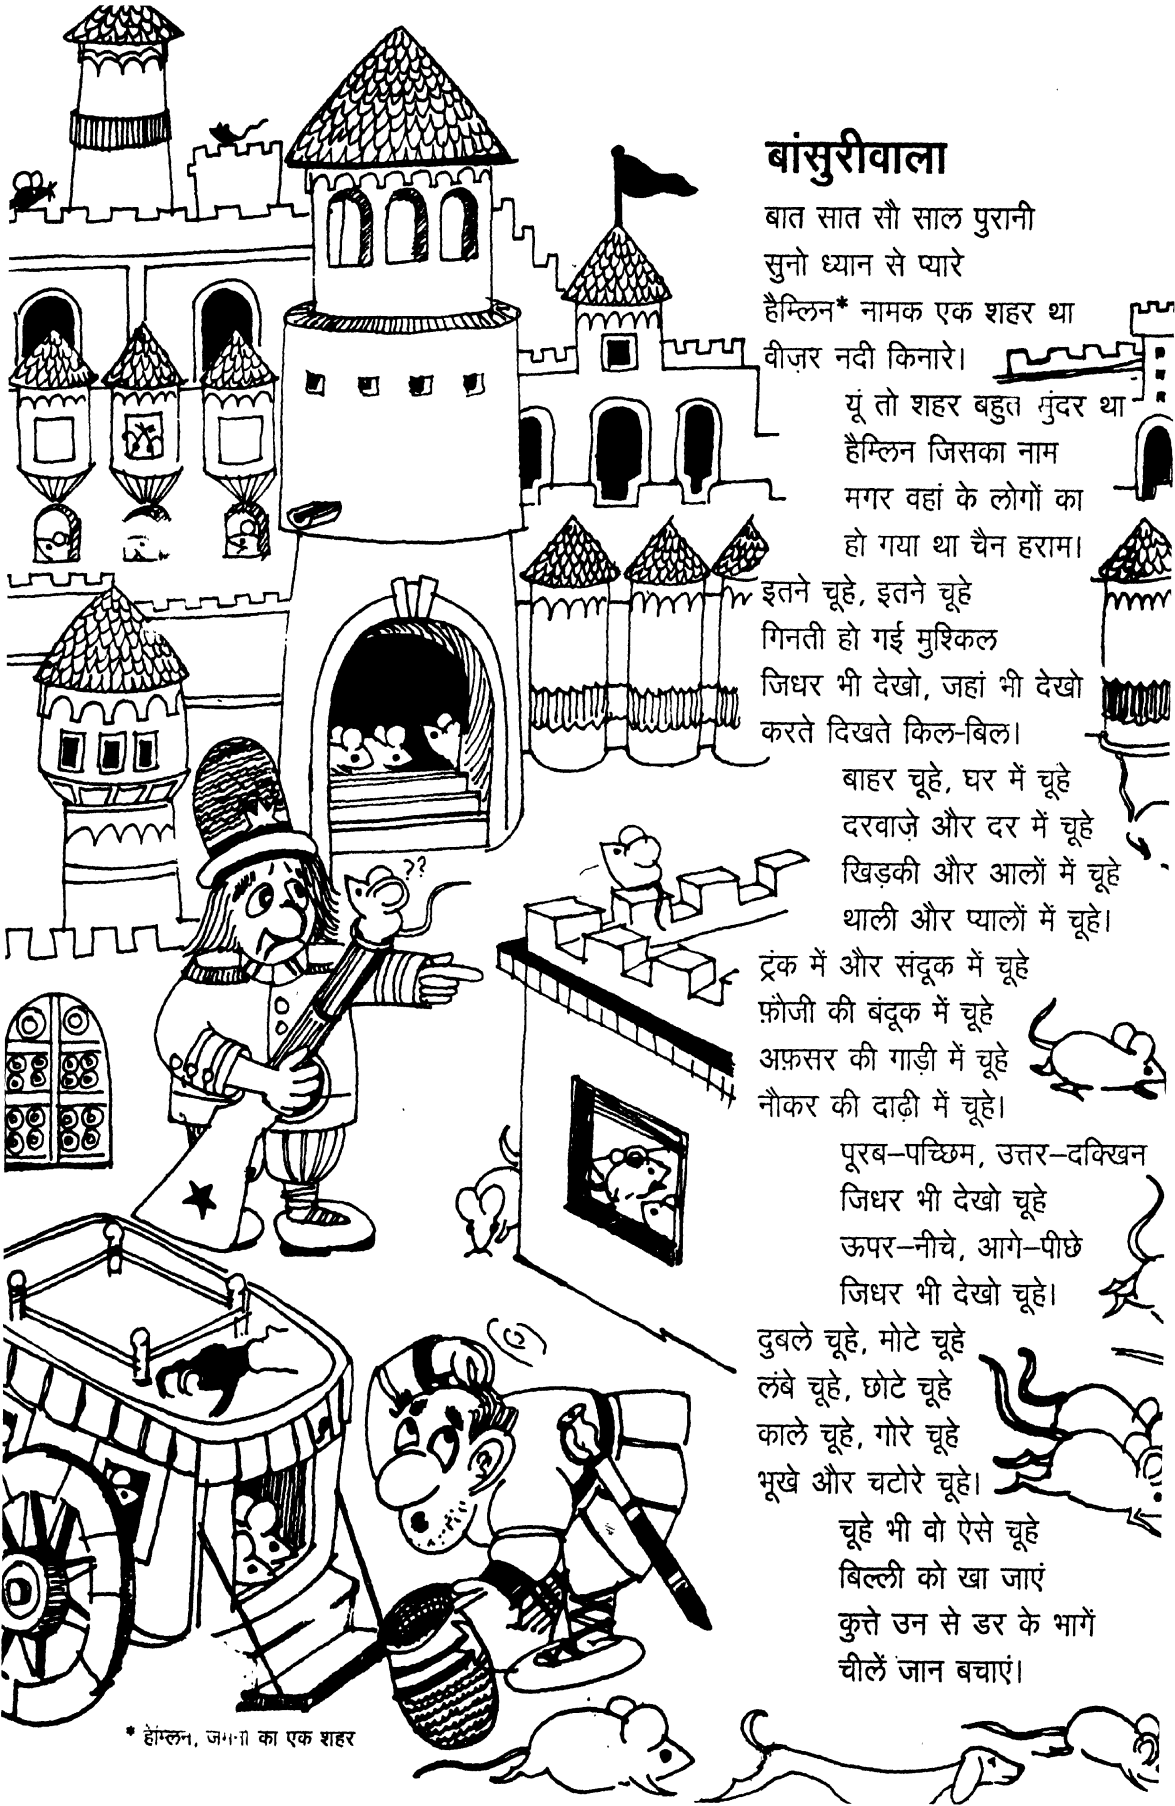 बांसुरीवाला
बात सात सौ साल पुरानी
सुनो ध्यान से प्यारे
हैम्लिन* नामक एक शहर था
वीज़र नदी किनारे।
यूं तो शहर बहुत सुंदर था
हैम्लिन जिसका नाम
मगर वहां के लोगों का
हो गया था चैन हराम।
इतने चूहे, इतने चूहे
गिनती हो गई मुश्किल
जिधर भी देखो, जहां भी देखो
करते दिखते किल-बिल।
बाहर चूहे, घर में चूहे
दरवाज़े और दर में चूहे
खिड़की और आलों में चूहे
थाली और प्यालों में चूहे।
ट्रंक में और संदूक में चूहे
फ़ौजी की बंदूक में चूहे
अफ़सर की गाड़ी में चूहे
नौकर की दाढ़ी में चूहे।
पूरब–पच्छिम, उत्तर–दक्खिन
जिधर भी देखो चूहे
ऊपर–नीचे, आगे–पीछे
जिधर भी देखो चूहे।
दुबले चूहे, मोटे चूहे
लंबे चूहे, छोटे चूहे
काले चूहे, गोरे चूहे
भूखे और चटोरे चूहे।
चूहे भी वो ऐसे चूहे
बिल्ली को खा जाएं
कुत्ते उन से डर के भागें
चीलें जान बचाएं।
??
* हैम्लिन, जर्मनी का एक शहर